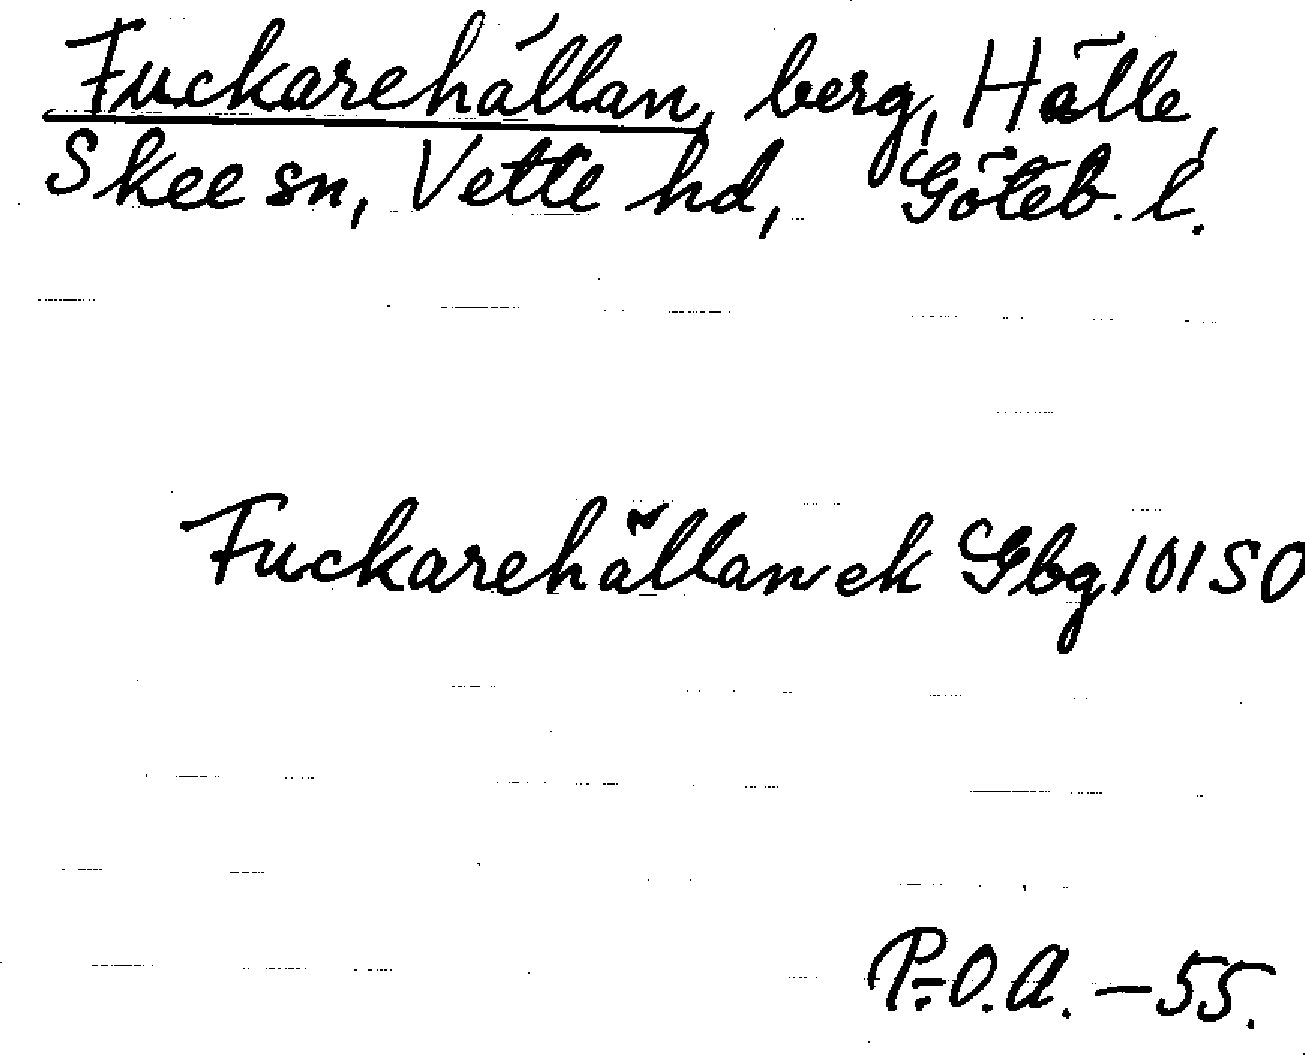 Fuckarehällan, berg, Hälle,
Skee sn, Vette hd, Göteb. l.
Fuckarehällan ek Gbg 101 SO
P.O.A. - 55.